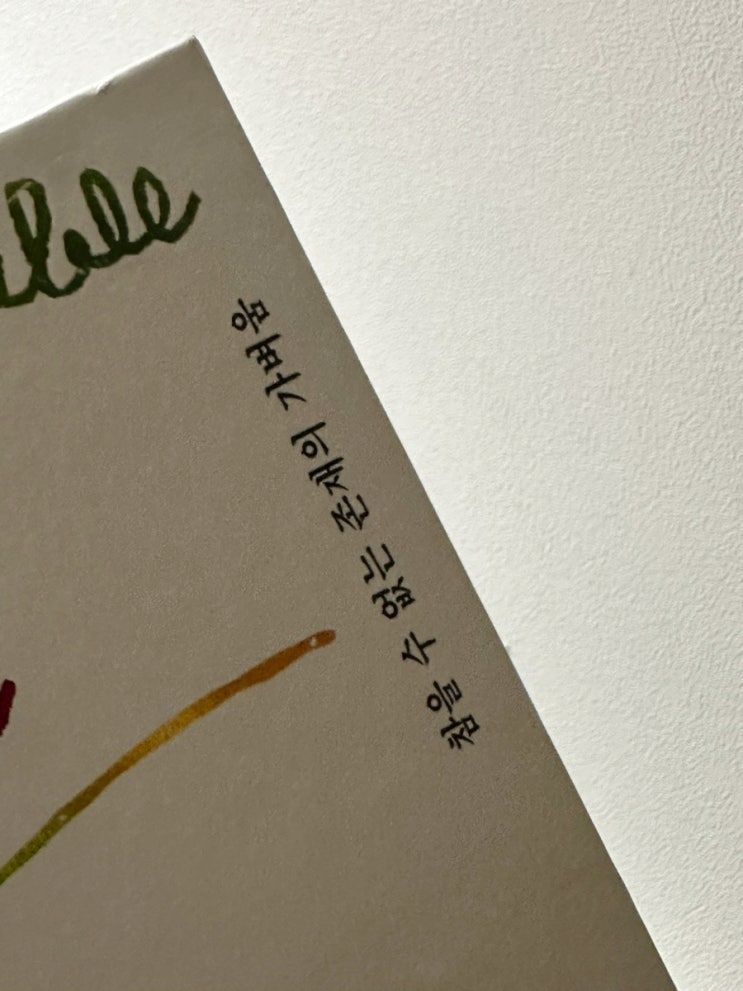 참을 수 없는 존재의 가벼움